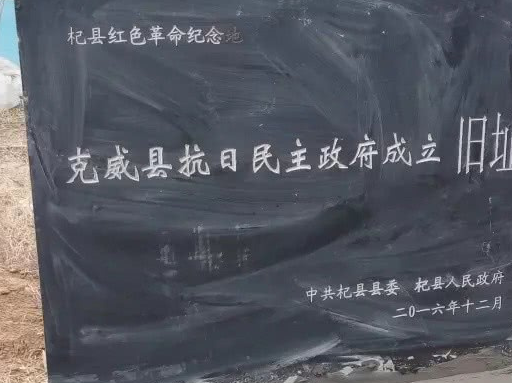 杞县红色革命纪念地
克威县抗日民主政府成立旧址
中共杞县县委 杞县人民政府
二〇一六年十二月